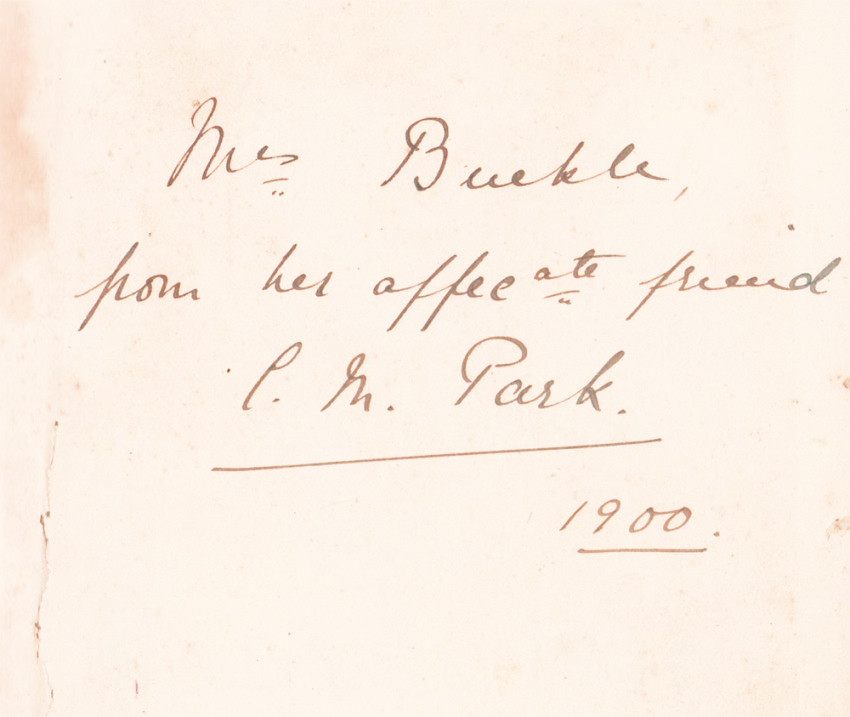 Mrs Buckle,
from her affecate friend
C. M. Park.
1900.